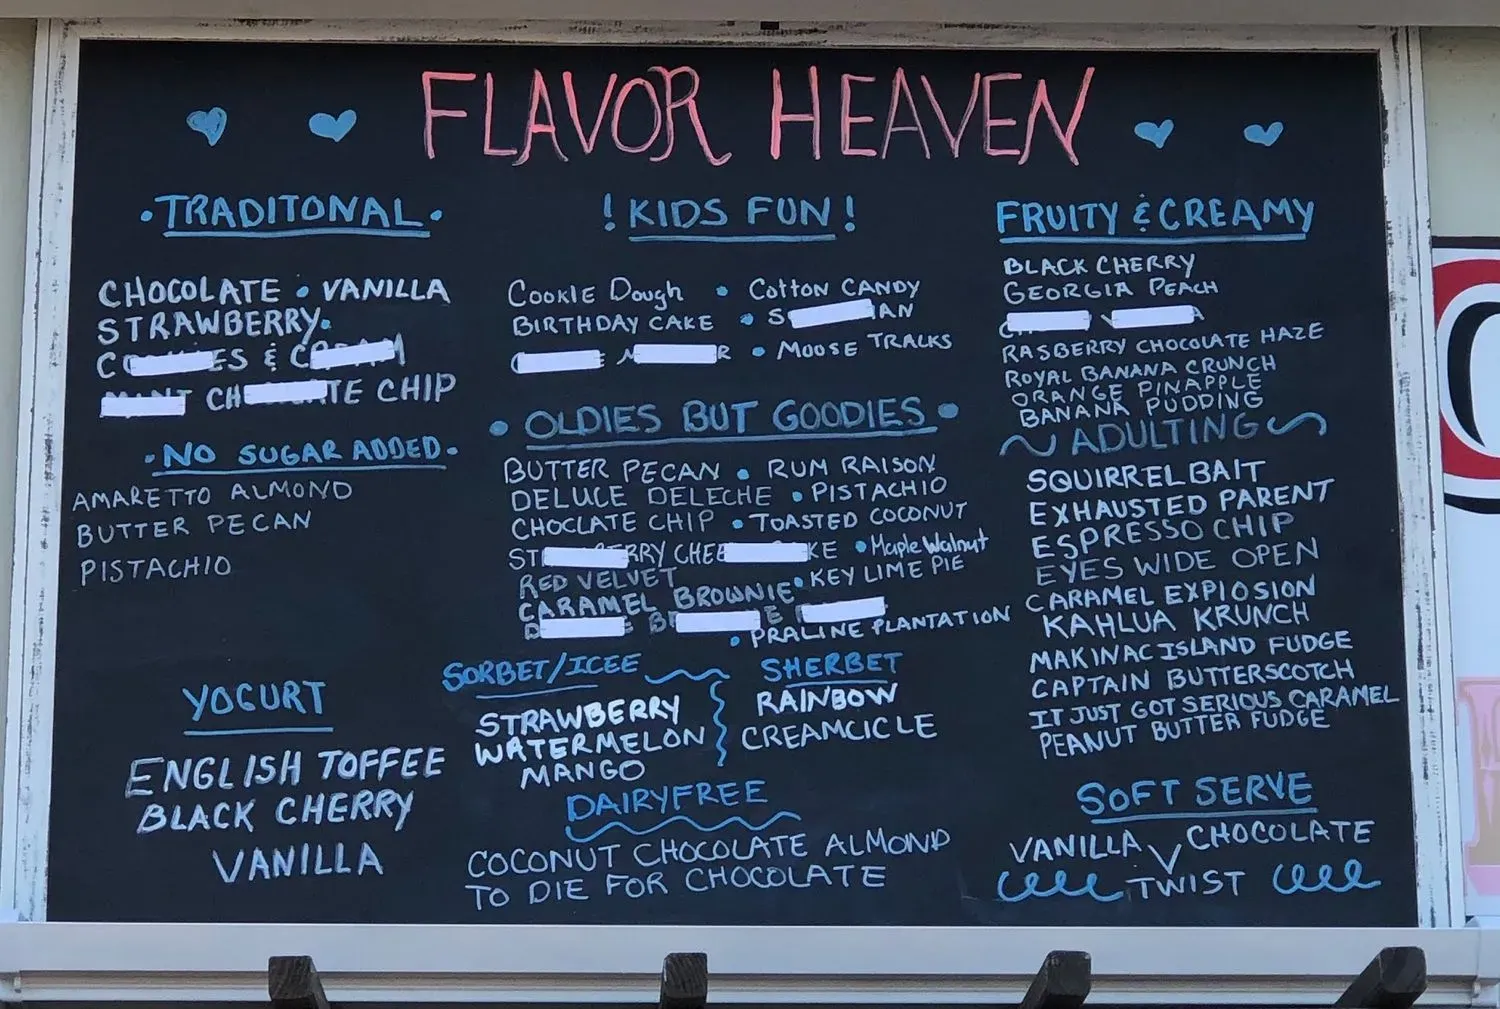 FLAVOR HEAVEN
•TRADITONAL•
CHOCOLATE • VANILLA
STRAWBERRY•
&
CHIP
•NO SUGAR ADDED•
AMARETTO ALMOND
BUTTER PECAN
PISTACHIO
YOGURT
ENGLISH TOFFEE
BLACK CHERRY
VANILLA
! KIDS FUN !
COOKIE Dough • COTTON CANDY
BIRTHDAY CAKE •
• MOOSE TRACKS
• OLDIES BUT GOODIES •
BUTTER PECAN • RUM RAISON
DELUCE DELECHE • PISTACHIO
CHOCLATE CHIP • TOASTED COCONUT
• Maple Walnut
RED VELVET
• KEY LIME PIE
CARAMEL BROWNIE
• PRALINE PLANTATION
SORBET/ICEE
STRAWBERRY
WATERMELON
MANGO
SHERBET
RAINBOW
CREAMCICLE
DAIRYFREE
COCONUT CHOCOLATE ALMOND
TO DIE FOR CHOCOLATE
FRUITY & CREAMY
BLACK CHERRY
GEORGIA PEACH
RASBERRY CHOCOLATE HAZE
ROYAL BANANA CRUNCH
ORANGE PINAPPLE
BANANA PUDDING
~ ADULTING ~
SQUIRREL BAIT
EXHAUSTED PARENT
ESPRESSO CHIP
EYES WIDE OPEN
CARAMEL EXPLOSION
KAHLUA KRUNCH
MAKINAC ISLAND FUDGE
CAPTAIN BUTTERSCOTCH
IT JUST GOT SERIOUS CARAMEL
PEANUT BUTTER FUDGE
SOFT SERVE
VANILLA CHOCOLATE
TWIST